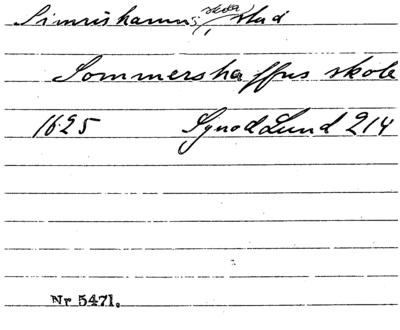 Simrishamns skola stad
Sommershaffns skole
1625 Synod Lund 214
Nr 5471.